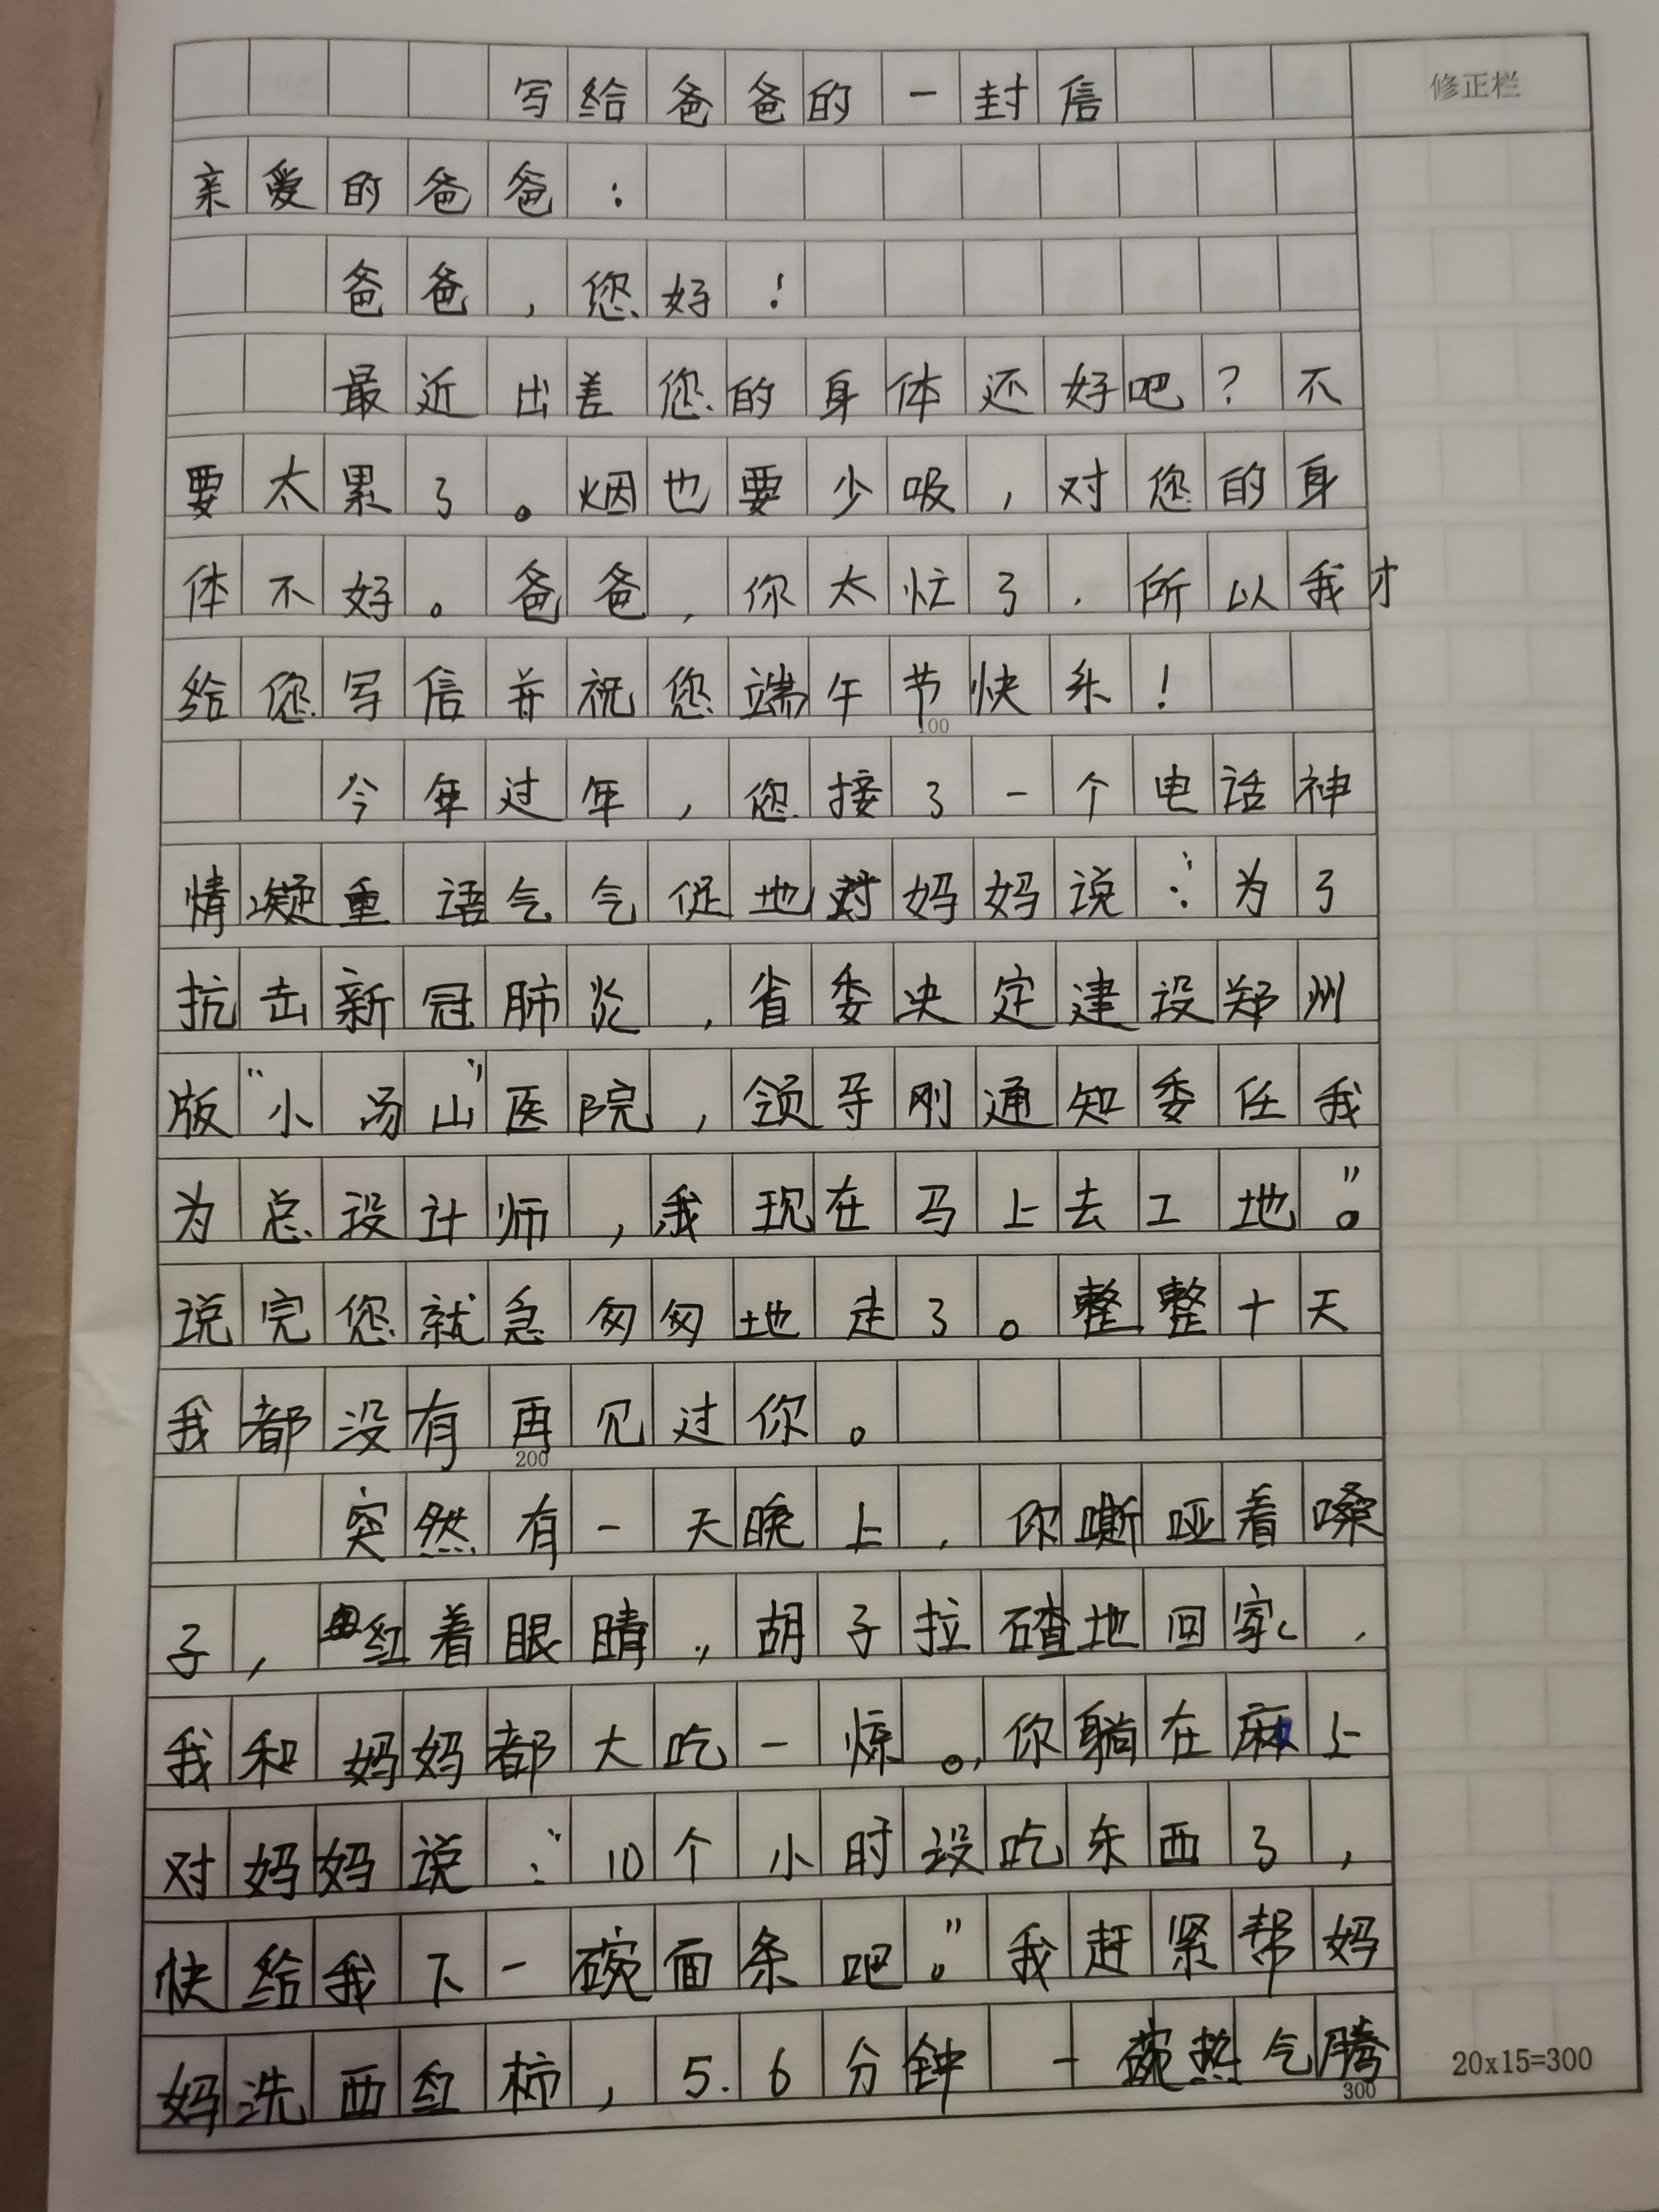 写给爸爸的一封信
修正栏
亲爱的爸爸：
爸爸，您好！
最近出差您的身体还好吧？不
要太累了。烟也要少吸，对您的身
体不好。爸爸，你太忙了，所以我才
给您写信并祝您端午节快乐！
100
今年过年，您接了一个电话神
情凝重语气气促地对妈妈说：“为了
抗击新冠肺炎，省委决定建设郑州
版“小汤山”医院，领导刚通知委任我
为总设计师，我现在马上去工地。”
说完您就急匆匆地走了。整整十天
我都没有再见过你。
200
突然有一天晚上，你嘶哑着嗓
子，红着眼睛，胡子拉碴地回家，
我和妈妈都大吃一惊。你躺在床上
对妈妈说：“10个小时没吃东西了，
快给我下一碗面条吧。”我赶紧帮妈
妈洗西红柿，5.6分钟一碗热气腾
300
20x15=300